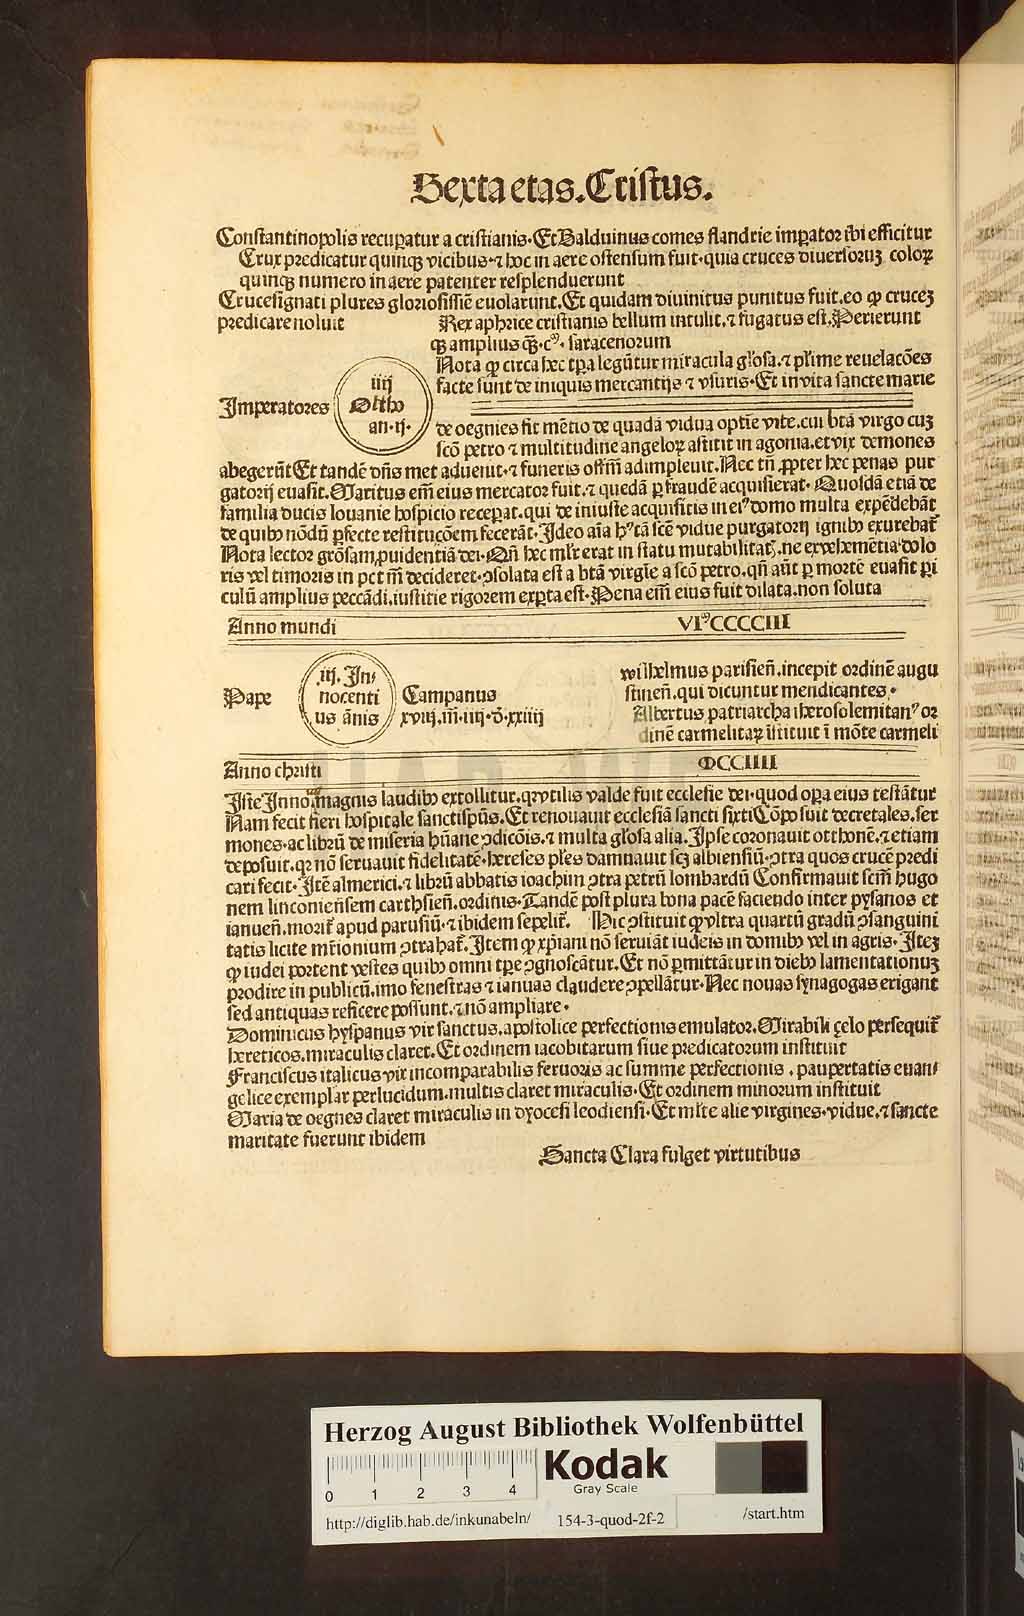 Sexta etas. Cristus.
Constantinopolis recuꝑatur a cristianis. Et Balduinus comes flandrie imꝑator ibi efficitur
Crux predicatur quinqꝫ vicibus. ⁊ hoc in aere ostensum fuit. quia cruces diuersoruꝫ coloꝝ
quinqꝫ numero in aere patenter resplenduerunt
Crucesignati plures gloriosissīe euolarunt. Et quidam diuinitus punitus fuit. eo ꝙ cruceꝫ
predicare noluit
Rex aphrice cristianis bellum intulit. ⁊ fugatus est. Perierunt
amplius saracenorum
Nota ꝙ circa hec tꝑa legūtur miracula gl̄osa. ⁊ pl̄ime reuelacōes
facte sunt de iniquis mercantijs ⁊ vsuris. Et in vita sancte marie
Imperatores
iiij
Ottho
an. ij.
de oegnies fit mētio de quadā vidua optīe vite. cui btā virgo cuꝫ
scō petro ⁊ multitudine angeloꝝ astitit in agonia. et vix demones
abegerūt Et tandē dn̄s met aduenit. ⁊ funeris offm̄ adimpleuit. Nec tn̄ ꝓpter hec penas pur
gatorij euasit. Maritus em̄ eius mercator fuit. ⁊ quedā ꝑ fraudē acquisierat. Quosdā etiā de
familia ducis louanie hospicio receꝑat. qui de iniuste acquisitis in eiꝰ domo multa expēdebāt
de quibꝰ nōdū ꝑfecte restituçōem fecerāt. Ideo aīa hꝰ tā scē vidue purgatorij ignibꝰ exurebat̄
Nota lector grōsam ꝓuidentiā dei. Qn̄ hec ml̄r erat in statu mutabilitatꝭ. ne ex vehemētia dolo
ris vel timoris in pct m̄ decideret. ꝯsolata est a btā virgīe a scō petro. qn̄ aūt ꝑ mortē euasit ꝑi
culū amplius peccādi. iustitie rigorem exꝑta est. Pena em̄ eius fuit dilata. non soluta
Anno mundi VIᵐCCCCIII
Pape
.iij. In⸗
nocenti
us ānis
Campanus
xviij. m̄. iiij. d̄. xxiiij
wilhelmus parisien̄. incepit ordinē augu
stinen̄. qui dicuntur mendicantes.
Albertus patriarcha iherosolemitanꝰ or
dinē carmelitaꝝ īstituit ī mōte carmeli
Anno christi MCCIIII
Iste Inno magnis laudibꝰ extollitur. qꝛ vtilis valde fuit ecclesie dei. quod oꝑa eius testātur
Nam fecit fieri hospitale sanctispūs. Et renouauit ecclesiā sancti sixti Cōposuit decretales. ser
mones. ac librū de miseria hūane ꝯdicōis. ⁊ multa gl̄osa alia. Ipse coronauit otthonē. ⁊ etiam
deposuit. qꝛ nō seruauit fidelitatē. hereses pl̄es damnauit scꝫ albiensiū. ꝯtra quos crucē predi
cari fecit. Itē almerici. ⁊ librū abbatis ioachim ꝯtra petrū lombardū Confirmauit scm̄ hugo
nem linconiēnsem carthsien̄. ordinis. Tandē post plura bona pacē faciendo inter pysanos et
ianuen̄. morit̄ apud parusiū. ⁊ ibidem sepelit̄. Hic ꝯstituit ꝙ vltra quartū gradū ꝯsanguini
tatis licite mr̄ionium ꝯtrahat̄. Item ꝙ xp̄iani nō seruiāt iudeis in domibꝰ vel in agris. Iteꝫ
ꝙ iudei portent vestes quibꝰ omni tꝑe ꝯgnoscātur. Et nō ꝑmittātur in diebꝰ lamentationuꝫ
prodire in publicū. imo fenestras ⁊ ianuas claudere ꝯpellātur. Nec nouas synagogas erigant
sed antiquas reficere possunt. ⁊ nō ampliare.
Dominicus hyspanus vir sanctus. apostolice perfectionis emulator. Mirabili çelo persequit̄
hereticos. miraculis claret. Et ordinem iacobitarum siue predicatorum instituit
Franciscus italicus vir incomparabilis feruoris ac summe perfectionis. paupertatis euan⸗
gelice exemplar perlucidum. multis claret miraculis. Et ordinem minorum instituit
Maria de oegnes claret miraculis in dyocesi leodiensi. Et ml̄te alie virgines. vidue. ⁊ sancte
maritate fuerunt ibidem
Sancta Clara fulget virtutibus
Herzog August Bibliothek Wolfenbüttel
0 1 2 3 4
Kodak
Gray Scale
http://diglib.hab.de/inkunabeln/ 154-3-quod-2f-2 /start.htm